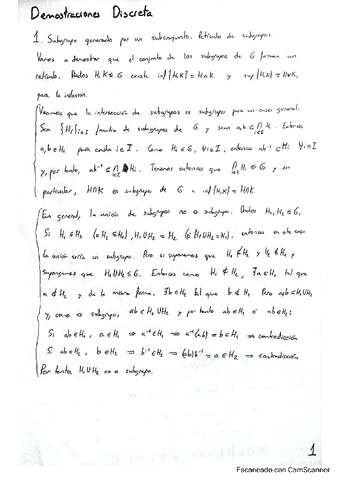 Demostraciones Discreta
1. Subgrupo generado por un subconjunto. Retículo de subgrupos.
Vamos a demostrar que el conjunto de los subgrupos de G forman un
retículo. Dados H,K≤G existe inf{H,K}=H∩K y sup{H,K}=H∨K,
para la inclusión.
Veamos que la intersección de subgrupos es subgrupo para un caso general.
Sea {Hi}i∈I familia de subgrupos de G y sean a,b∈∩i∈I Hi. Entonces
a,b∈Hi para cada i∈I. Como Hi≤G, ∀i∈I, entonces ab⁻¹∈Hi ∀i∈I
y, por tanto, ab⁻¹∈∩i∈I Hi. Tenemos entonces que ∩i∈I Hi≤G y en
particular, H∩K es subgrupo de G e inf{H,K}=H∩K
En general, la unión de subgrupos no es subgrupo. Dados H₁,H₂≤G.
Si H₁≤H₂ (o H₂≤H₁), H₁∪H₂=H₂ (ó H₁∪H₂=H₁), entonces en este caso
la unión sería un subgrupo. Pero si suponemos que H₁≰H₂ y H₂≰H₁ y
supongamos que H₁∪H₂≤G. Entonces como H₁≰H₂, ∃a∈H₁ tal que
a∉H₂ y de la misma forma, ∃b∈H₂ tal que b∉H₁. Pero a,b∈H₁∪H₂
y, como es subgrupo, ab∈H₁∪H₂ y por tanto ab∈H₁ o ab∈H₂:
Si ab∈H₁, a∈H₁ ⇒ a⁻¹∈H₁ ⇒ a⁻¹(ab)=b∈H₁ ⇒ contradicción
Si ab∈H₂, b∈H₂ ⇒ b⁻¹∈H₂ ⇒ (ab)b⁻¹=a∈H₂ ⇒ contradicción
Por tanto, H₁∪H₂ no es subgrupo.
1
Escaneado con CamScanner